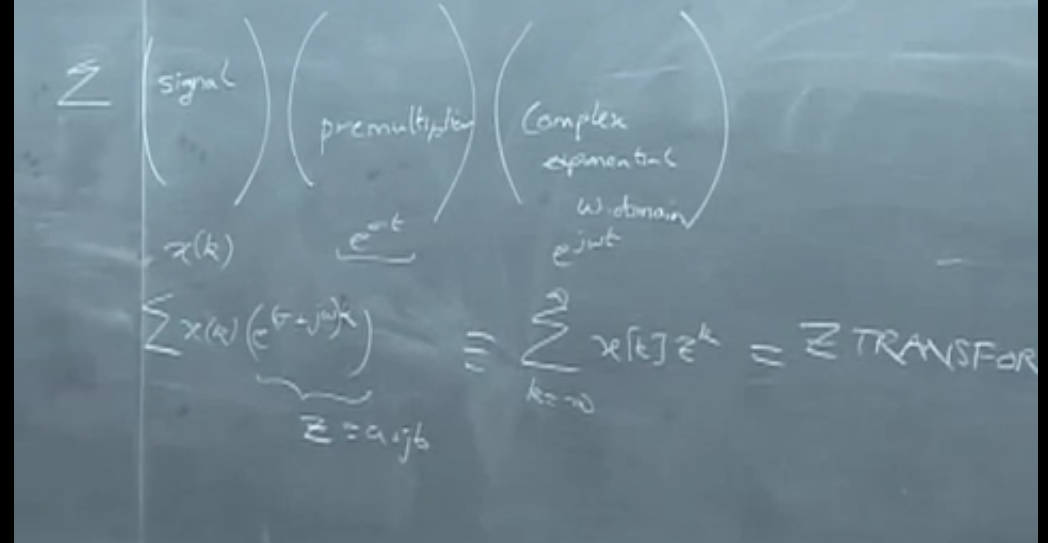 Σ (signal) (premultiplier) (Complex exponential ω-domain)
x(k) e^{σt} e^{jωt}
Σ x(k) (e^{(σ+jω)k}) ≡ Σ_{k=-∞}^{∞} x[k] z^k = Z TRANSFOR
z = a+jb